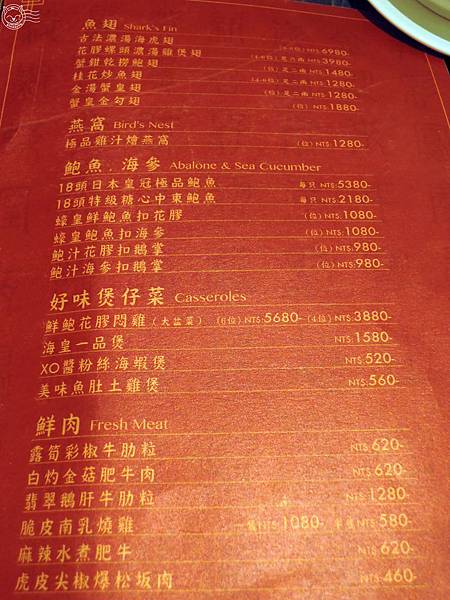 魚翅 Shark's Fin
古法濃湯海虎翅 NT$:6980-
花膠螺頭濃湯雞煲翅 (4-6位) 足六兩 NT$:3980-
蟹鉗乾撈鮑翅 (位) 足二兩 NT$:1480-
桂花炒魚翅 (4-6位) 足二兩 NT$:1280-
金湯蟹皇翅 (位) 足二兩 NT$:1280-
蟹皇金勾翅 (位) NT$:1880-
燕窩 Bird's Nest
極品雞汁燴燕窩 (位) NT$:1280-
鮑魚.海參 Abalone & Sea Cucumber
18頭日本皇冠極品鮑魚 每只 NT$:5380-
18頭特級糖心中東鮑魚 每只 NT$:2180-
蠔皇鮮鮑魚扣花膠 (位) NT$:1080-
蠔皇鮑魚扣海參 (位) NT$:1080-
鮑汁花膠扣鵝掌 (位) NT$:980-
鮑汁海參扣鵝掌 (位) NT$:980-
好味煲仔菜 Casseroles
鮮鮑花膠悶雞(大盆菜) (6位) NT$:5680- (4位) NT$:3880-
海皇一品煲 NT$:1580-
XO醬粉絲海蝦煲 NT$:520-
美味魚肚土雞煲 NT$:560-
鮮肉 Fresh Meat
露筍彩椒牛肋粒 NT$:620-
白灼金菇肥牛肉 NT$:620-
翡翠鵝肝牛肋粒 NT$:1280-
脆皮南乳燒雞 NT$:1080- 半隻 NT$:580-
麻辣水煮肥牛 NT$:620-
虎皮尖椒爆松坂肉 NT$:460-